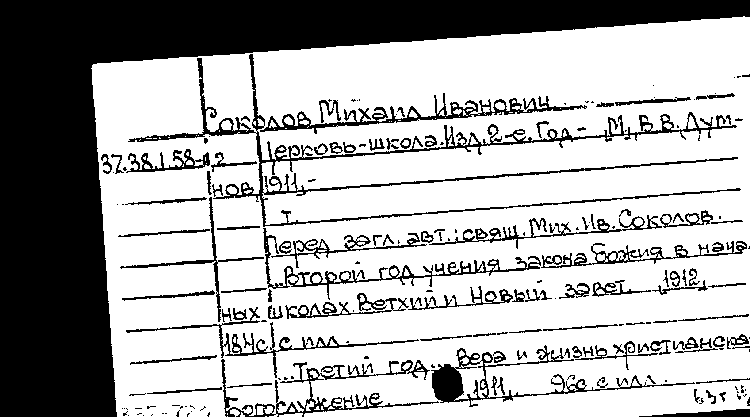 Соколов, Михаил Иванович.
37.38.1.58-а,2 Церковь-школа. Изд. 2-е. Год- М, В.В. Дум-
нов, 1911,-
т.
Перед загл. авт.: свящ. Мих. Ив. Соколов.
...Второй год учения закона Божия в нача
ных школах. Ветхий и Новый завет. 1912,
184с. с илл.
...Третий год... Вера и жизнь христианска
Богослужение. 1911, 96с. с илл.